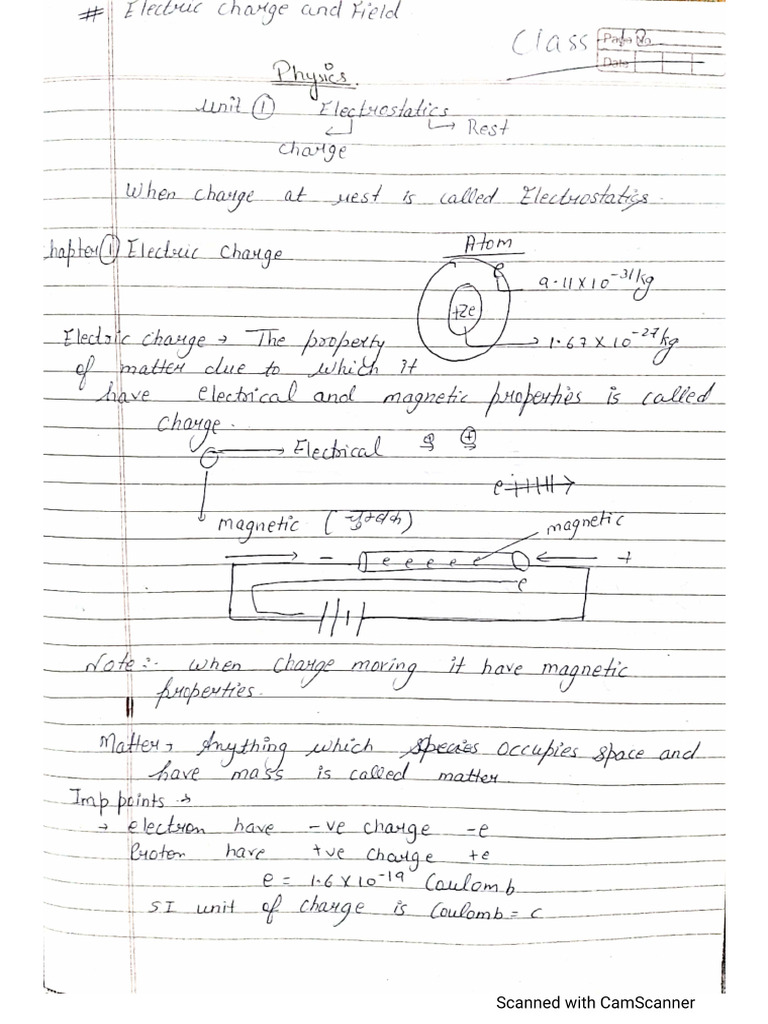 # Electric charge and Field
Class
Page No.
Date
Physics.
Unit ① Electrostatics
Rest
Charge
When charge at rest is called Electrostatics.
hapter ① Electric Charge
Atom
e
9.11 × 10⁻³¹ kg
+ze
1.67 × 10⁻²⁷ kg
Electric charge → The property
of matter due to which it
have electrical and magnetic properties is called
charge.
Electrical
e
magnetic (चुम्बक)
magnetic
- e e e e e +
e
Note :- when charge moving it have magnetic
properties.
Matter → Anything which species occupies space and
have mass is called matter.
Imp points →
→ electron have -ve charge -e
Proton have +ve charge +e
e = 1.6 × 10⁻¹⁹ Coulomb
S.I unit of charge is Coulomb = C
Scanned with CamScanner